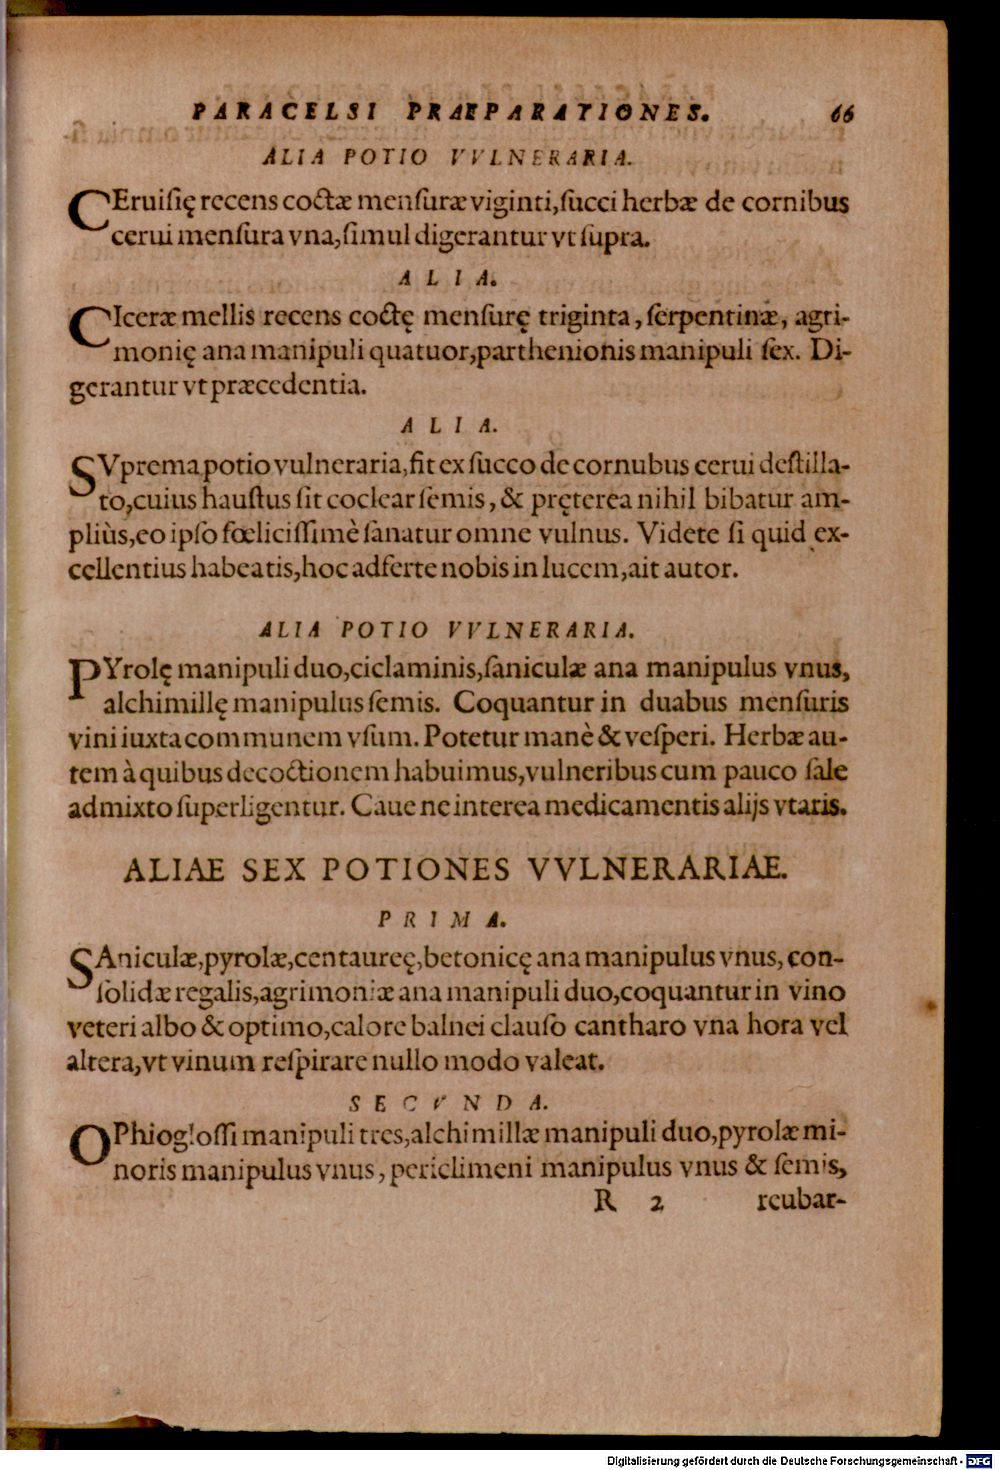 PARACELSI PRAEPARATIONES. 66
ALIA POTIO VVLNERARIA.
CEruiſię recens coctæ menſuræ viginti, ſucci herbæ de cornibus
cerui menſura vna, ſimul digerantur vt ſupra.
ALIA.
CIceræ mellis recens coctę menſurę triginta, ſerpentinæ, agri-
monię ana manipuli quatuor, parthenionis manipuli ſex. Di-
gerantur vt præcedentia.
ALIA.
SVprema potio vulneraria, fit ex ſucco de cornubus cerui deſtilla-
to, cuius hauſtus ſit coclear ſemis, & pręterea nihil bibatur am-
pliùs, eo ipſo fœliciſſimè ſanatur omne vulnus. Videte ſi quid ex-
cellentius habeatis, hoc adferte nobis in lucem, ait autor.
ALIA POTIO VVLNERARIA.
PYrolę manipuli duo, ciclaminis, ſaniculæ ana manipulus vnus,
alchimillę manipulus ſemis. Coquantur in duabus menſuris
vini iuxta communem vſum. Potetur manè & veſperi. Herbæ au-
tem à quibus decoctionem habuimus, vulneribus cum pauco ſale
admixto ſuperligentur. Caue ne interea medicamentis alijs vtaris.
ALIAE SEX POTIONES VVLNERARIAE.
PRIMA.
SAniculæ, pyrolæ, centaureę, betonicę ana manipulus vnus, con-
ſolidæ regalis, agrimoniæ ana manipuli duo, coquantur in vino
veteri albo & optimo, calore balnei clauſo cantharo vna hora vel
altera, vt vinum reſpirare nullo modo valeat.
SECVNDA.
OPhiogloſſi manipuli tres, alchimillæ manipuli duo, pyrolæ mi-
noris manipulus vnus, periclimeni manipulus vnus & ſemis,
R 2 reubar-
Digitalisierung gefördert durch die Deutsche Forschungsgemeinschaft - DFG